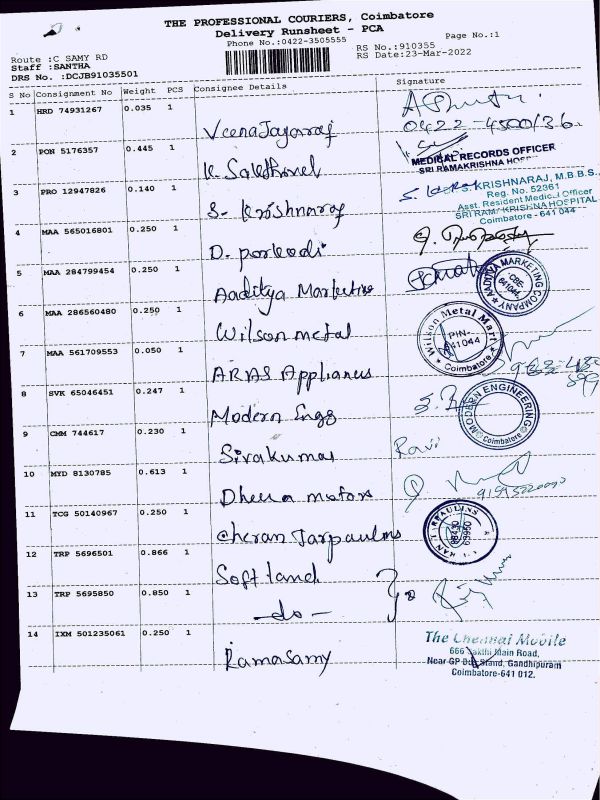 THE PROFESSIONAL COURIERS, Coimbatore
Delivery Runsheet - PCA
Phone No.:0422-3505555
Page No.:1
Route :C SAMY RD
Staff :SANTHA
DRS No. :DCJB91035501
RS No.:910355
RS Date:23-Mar-2022
S No Consignment No Weight PCS Consignee Details Signature
1 HRD 74931267 0.035 1 Veena Jayaraj
0422-4500136
2 PON 5176357 0.445 1 K. Sakthivel
MEDICAL RECORDS OFFICER
SRI RAMAKRISHNA HOSP
3 PRO 12947826 0.140 1 S. Krishnaraj
S. KRISHNARAJ, M.B.B.S.,
Reg. No. 52361
Asst. Resident Medical Officer
SRI RAMAKRISHNA HOSPITAL
Coimbatore - 641 044
4 MAA 565016801 0.250 1 D. porkodi
5 MAA 284799454 0.250 1 Aaditya Marketing
AADITYA MARKETING COMPANY
CBE-
641044
6 MAA 286560480 0.250 1 Wilson metal
Wilson Metal Mart
PIN-
641044
Coimbatore
7 MAA 561709553 0.050 1 ARAS Appliances
8 SVK 65046451 0.247 1 Modern Engg
MODERN ENGINEERING
Coimbatore
9 CMM 744617 0.230 1 Sivakumar
Ravi
10 MYD 8130785 0.613 1 Dheena motors
11 TCG 50140967 0.250 1 Cheran Tarpaulins
12 TRP 5696501 0.866 1 Softland
13 TRP 5695850 0.850 1 -do-
14 IXM 501235061 0.250 1 Ramasamy
The Chennai Mobile
666 Sakthi Main Road,
Near GP Bus Stand, Gandhipuram
Coimbatore-641 012.